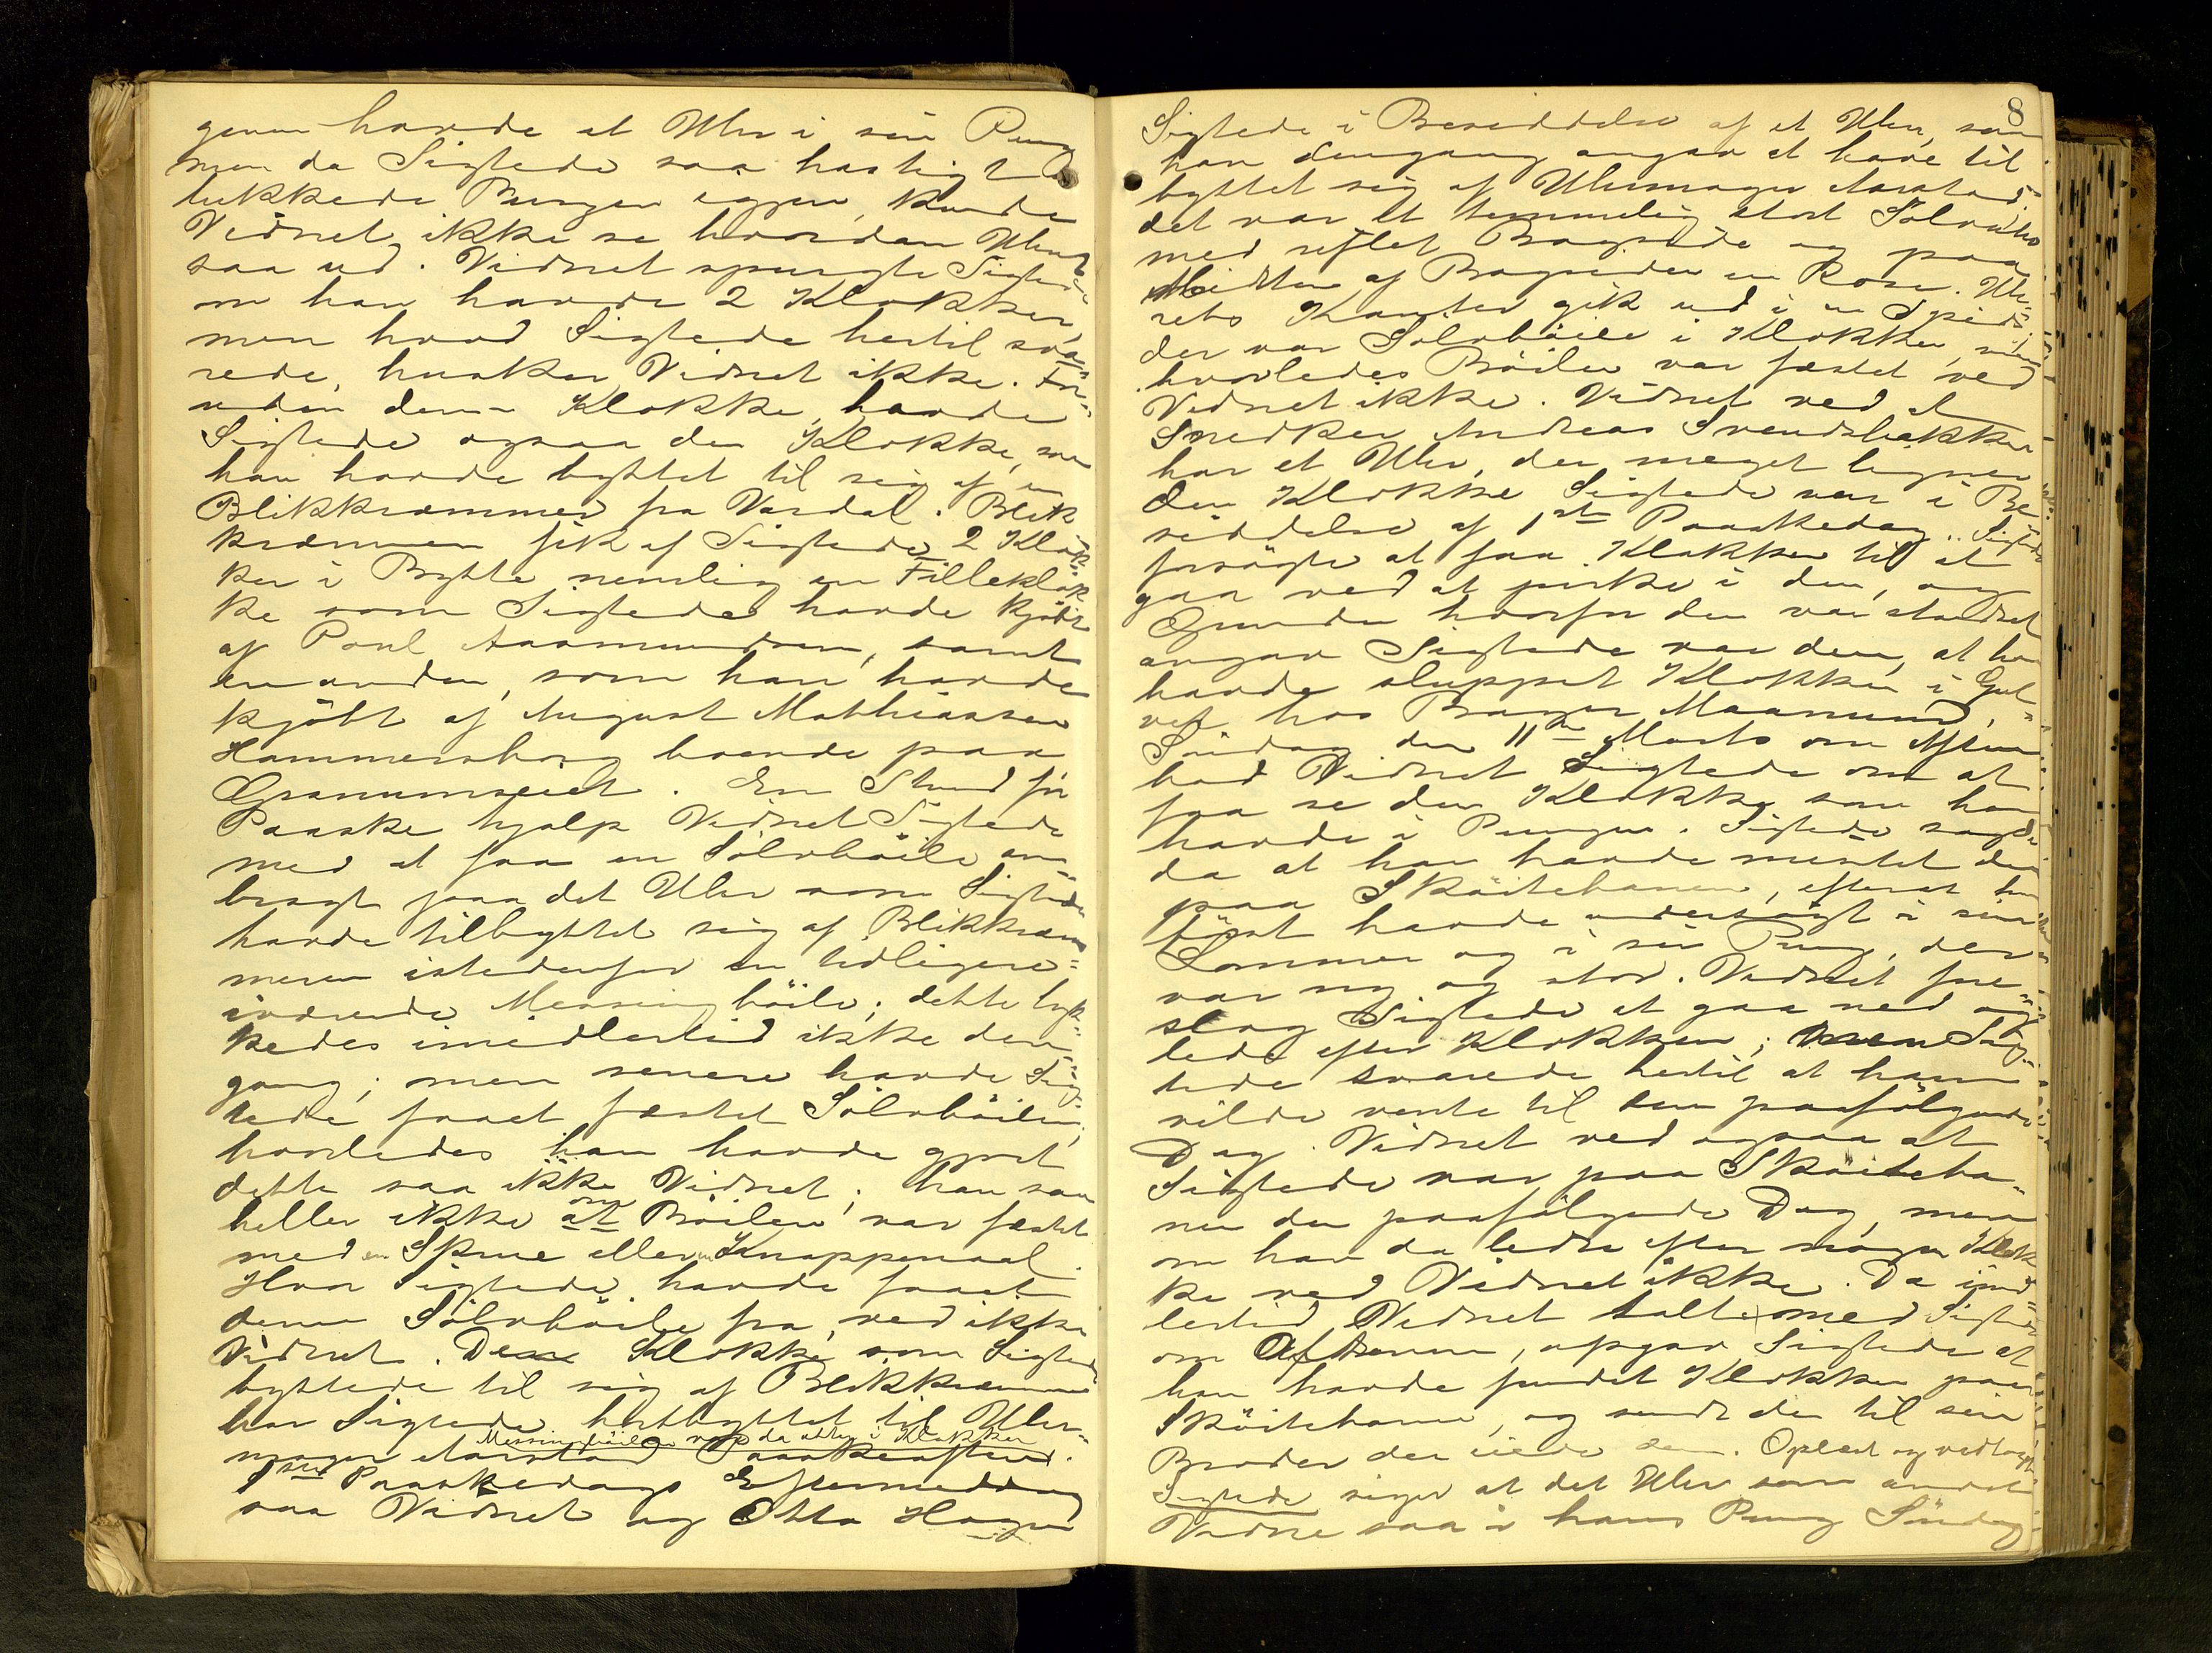 genen havde et Uhr i sin Pung
men da Sigtede saa hastigt
lukkede Pungen igjen, kunde
Vidnet ikke se hvordan Uhret
saa ud. Vidnet spurgte Sigtede
om han havde 2 Klokker,
men hvad Sigtede hertil sva-
rede, husker Vidnet ikke. For-
uden denne Klokke havde
Sigtede ogsaa den Klokke, som
han havde byttet til sig af en
Blikkræmmer fra Vardal. Blik
kræmmeren fik af Sigtede 2 Klok
ker i Bytte nemlig en Filleklok
ke som Sigtede havde kjøbt
af Poul Aasmundsen, samt
en anden, som han havde
kjøbt af August Mathiassen
Hammersborg boende paa
Granumseiet. En Stund før
Paaske hjalp Vidnet Sigtede
med at faa en Sølvbøile an-
bragt paa det Uhr som Sigtede
havde tilbyttet sig af Blikkræm
meren istedenfor en tidligere
værende Messingbøile; dette lyk-
kedes imidlertid ikke den-
gang; men senere havde Sig-
tede faaet fæstet Sølvbøilen,
hvorledes han havde gjort
dette saa ikke Vidnet; han saa
heller ikke om Bøilen var fæstet
med en Skrue eller en Knappenaal.
Hvor Sigtede havde faaet
denne Sølvbøile fra, ved ikke
Vidnet. Den Klokke som Sigtede
byttede til sig af Blikkræmmeren
har Sigtede bortbyttet til Uhr-
Messingbøilen var da atter i Klokken
mager Aarstad Paaskeaften.
1ste Paaskedags Eftermiddag
saa Vidnet og Otto Hagen
8
Sigtede i Besiddelse af et Uhr, som
han dengang angav at have til
byttet sig af Uhrmager Aarstad.
det var et temmelig stort Sølvuhr
med riflet Bagside og paa
Midten af Bagsiden en Rose. Uh-
rets Kanter gik ud i en Spids.
der var Sølvbøile i Klokken, men
hvorledes Bøilen var fæstet ved
Vidnet ikke. Vidnet ved at
Snedker Andreas Svendsbakken
har et Uhr, der meget ligner
den Klokke Sigtede var i Be
siddelse af 1ste Paaskedag. Sigtede
forsøgte at faa Klokken til at
gaa ved at pirke i den, og
Grunden hvorfor den var standset
angav Sigtede var den, at han
havde sluppet Klokken i Gul-
vet hos Bager Maanum.
Søndag den 11te Marts om Aftenen
bad Vidnet Sigtede om at
faa se den Klokke som han
havde i Pungen. Sigtede sagde
da at han havde mistet den
paa Skøitebanen, efterat han
først havde undersøgt i sine
Lommer og i sin Pung, der
var ny og stor. Vidnet fore-
slog Sigtede at gaa ned og
lede efter Klokken; men Sig-
tede svarede hertil at han
vilde vente til den paafølgende
Dag. Vidnet ved ogsaa at
Sigtede var paa Skøiteba-
nen den paafølgende Dag, men
om han da ledte efter nogen Klok
ke ved Vidnet ikke. Da imid-
lertid Vidnet talte med Sigtede
om Aftenen, opgav Sigtede at
han havde fundet Klokken paa
Skøitebanen, og sendt den til sin
Broder der eiede den. Oplæst og vedtaget
Sigtede siger at det Uhr som andet
Vidne saa i hans Pung Søndag